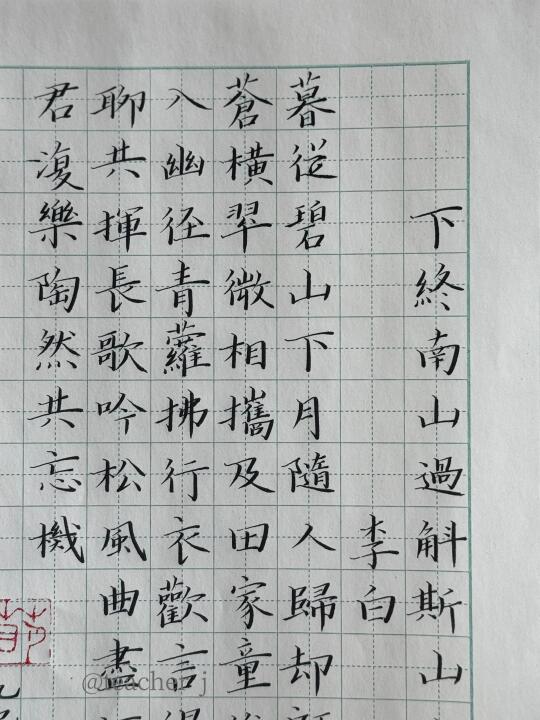 下終南山過斛斯山
李白
暮從碧山下月隨人歸却
蒼橫翠微相攜及田家童
入幽径青蘿拂行衣歡言
聊共揮長歌吟松風曲盡
君復樂陶然共忘機
@teacher j